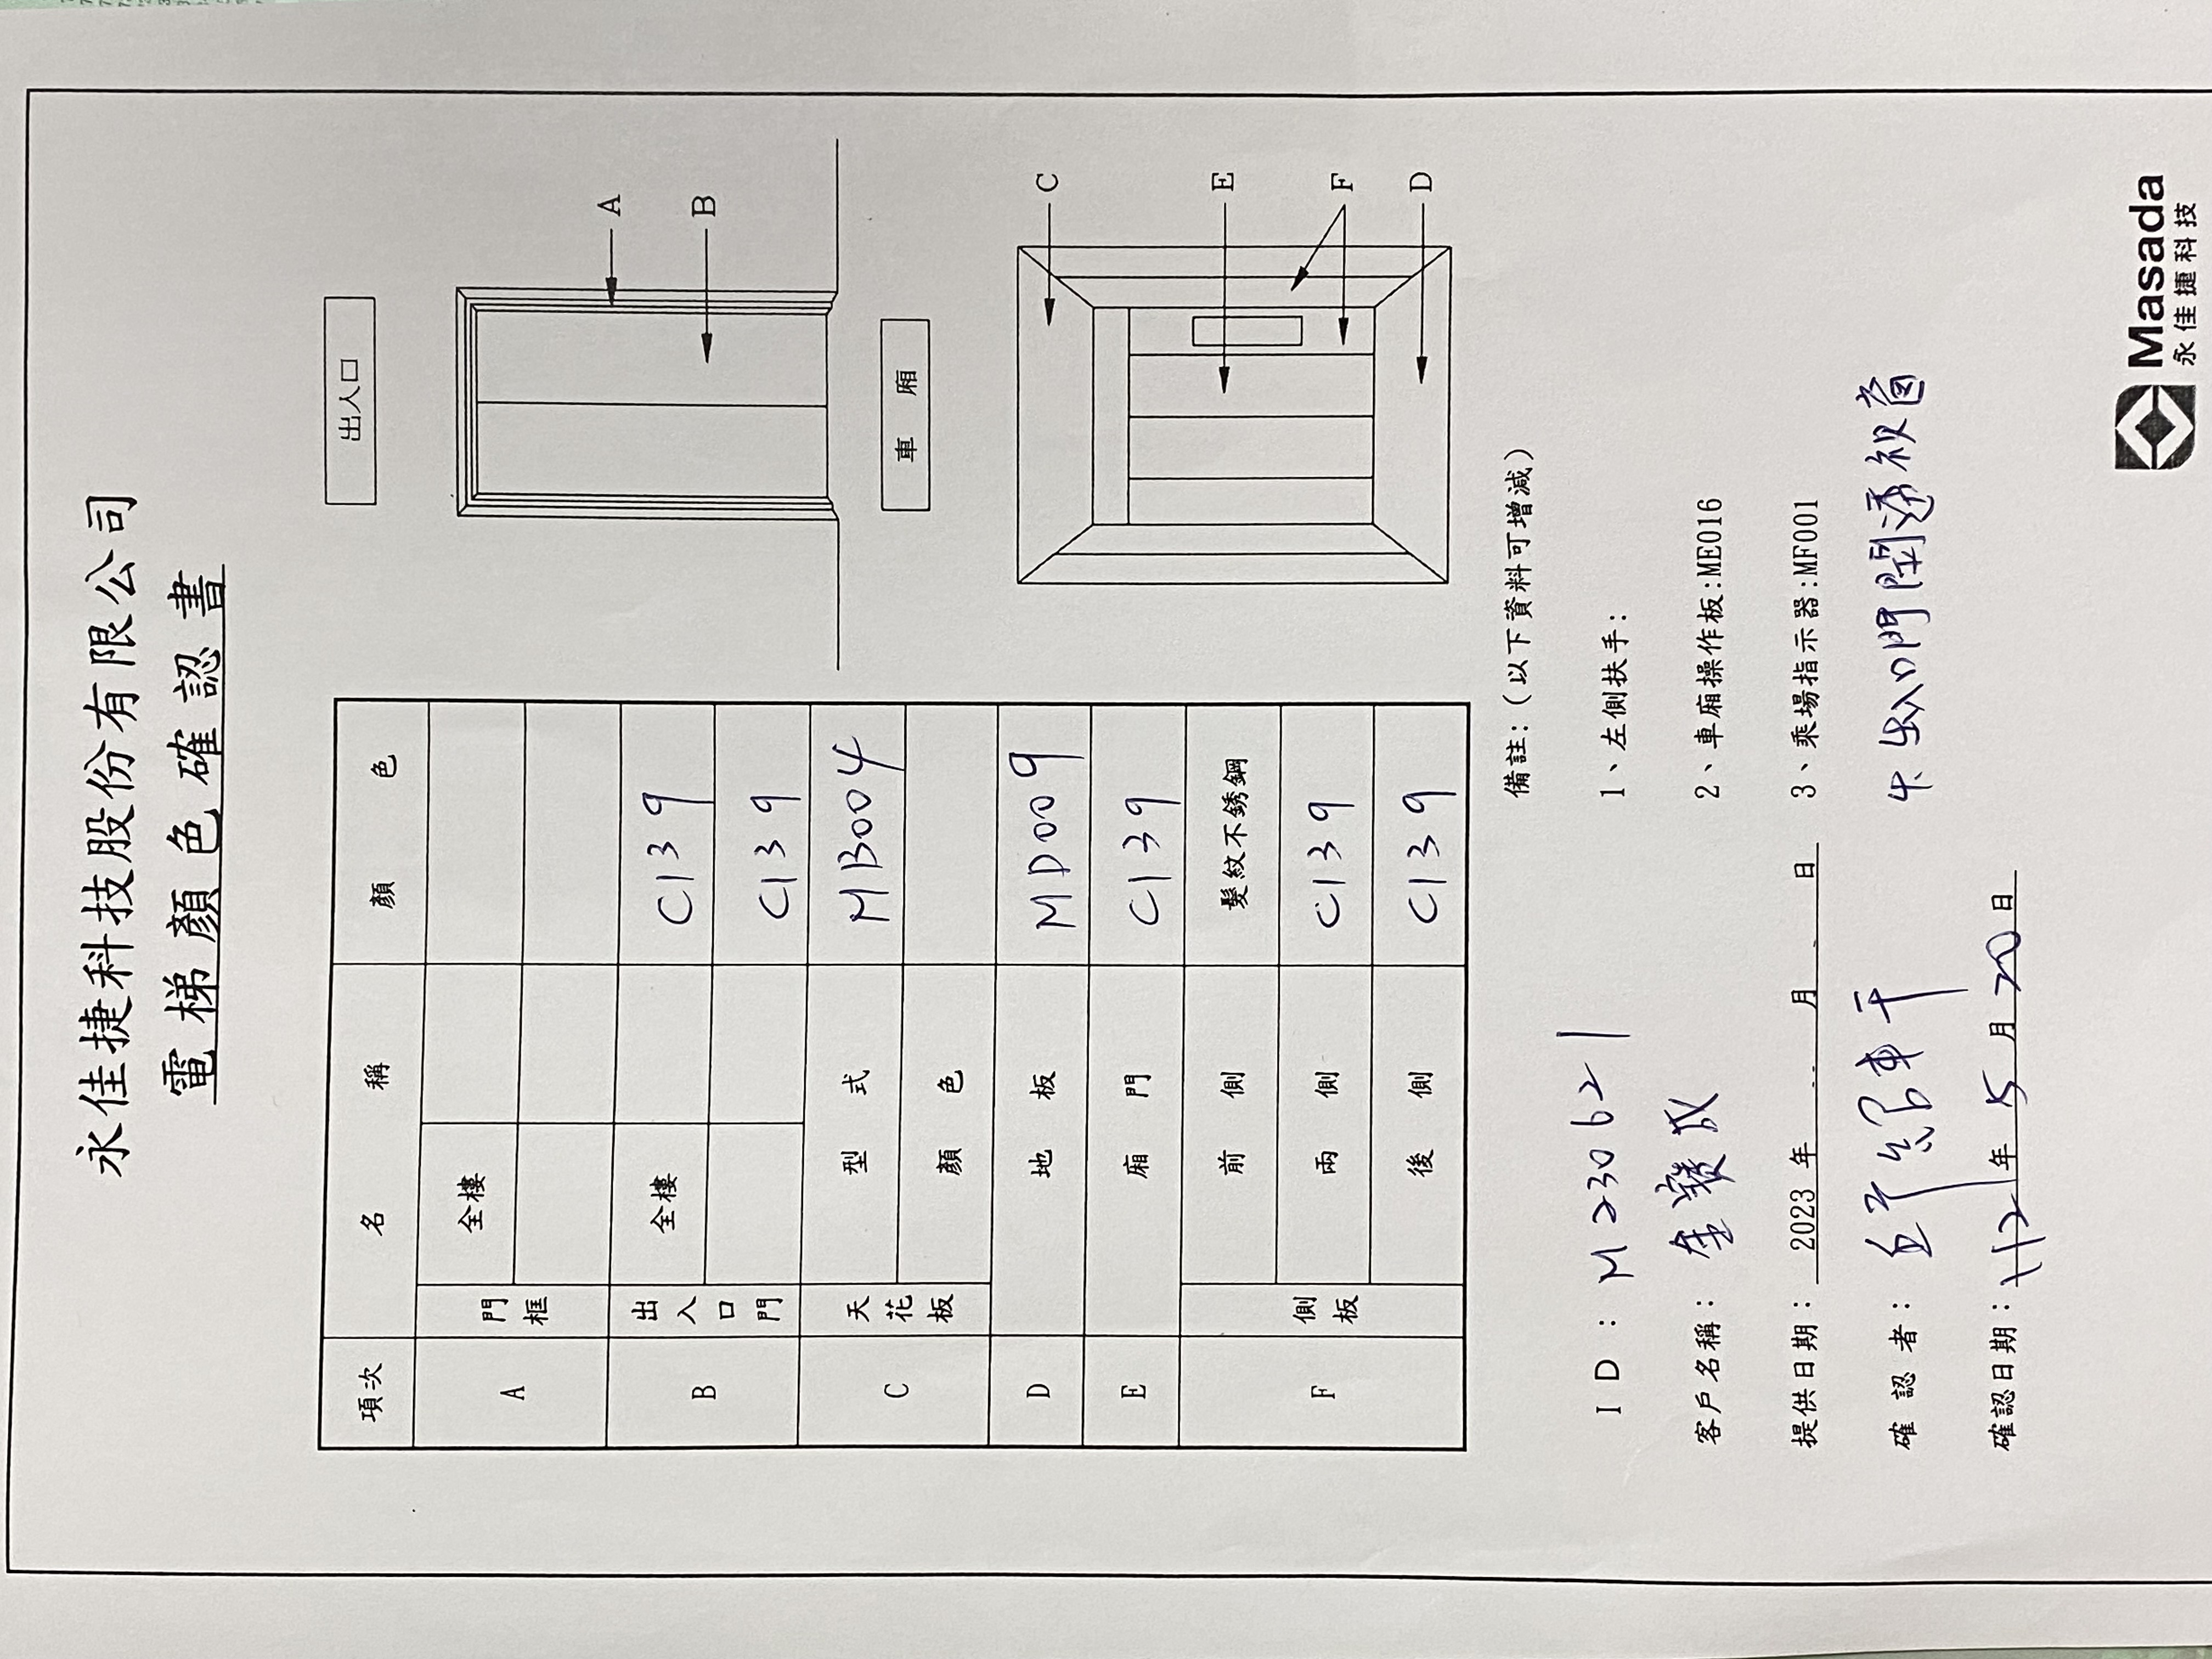 永佳捷科技股份有限公司
電梯顏色確認書
項次 名稱 顏色
A 門框 全樓
B 出入口門 全樓 C139
C139
C 天花板 型式 MB004
顏色
D 地板 MD009
E 廂門 C139
F 側板 前側 髮紋不銹鋼
兩側 C139
後側 C139
出入口
A
B
車廂
C
E
F
D
ID：M230621
客戶名稱：
提供日期：2023年 月 日
確認者：
確認日期：112年5月20日
備註：(以下資料可增減)
1、左側扶手：
2、車廂操作板：ME016
3、乘場指示器：MF001
4、出入口門開透視窗
Masada
永佳捷科技